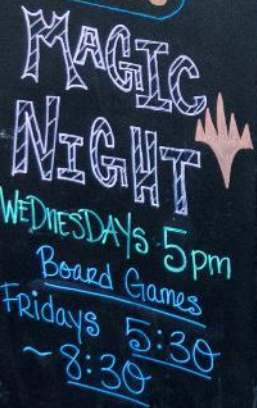 MAGIC
NIGHT
WEDNESDAYS 5pm
Board Games
Fridays 5:30
~ 8:30